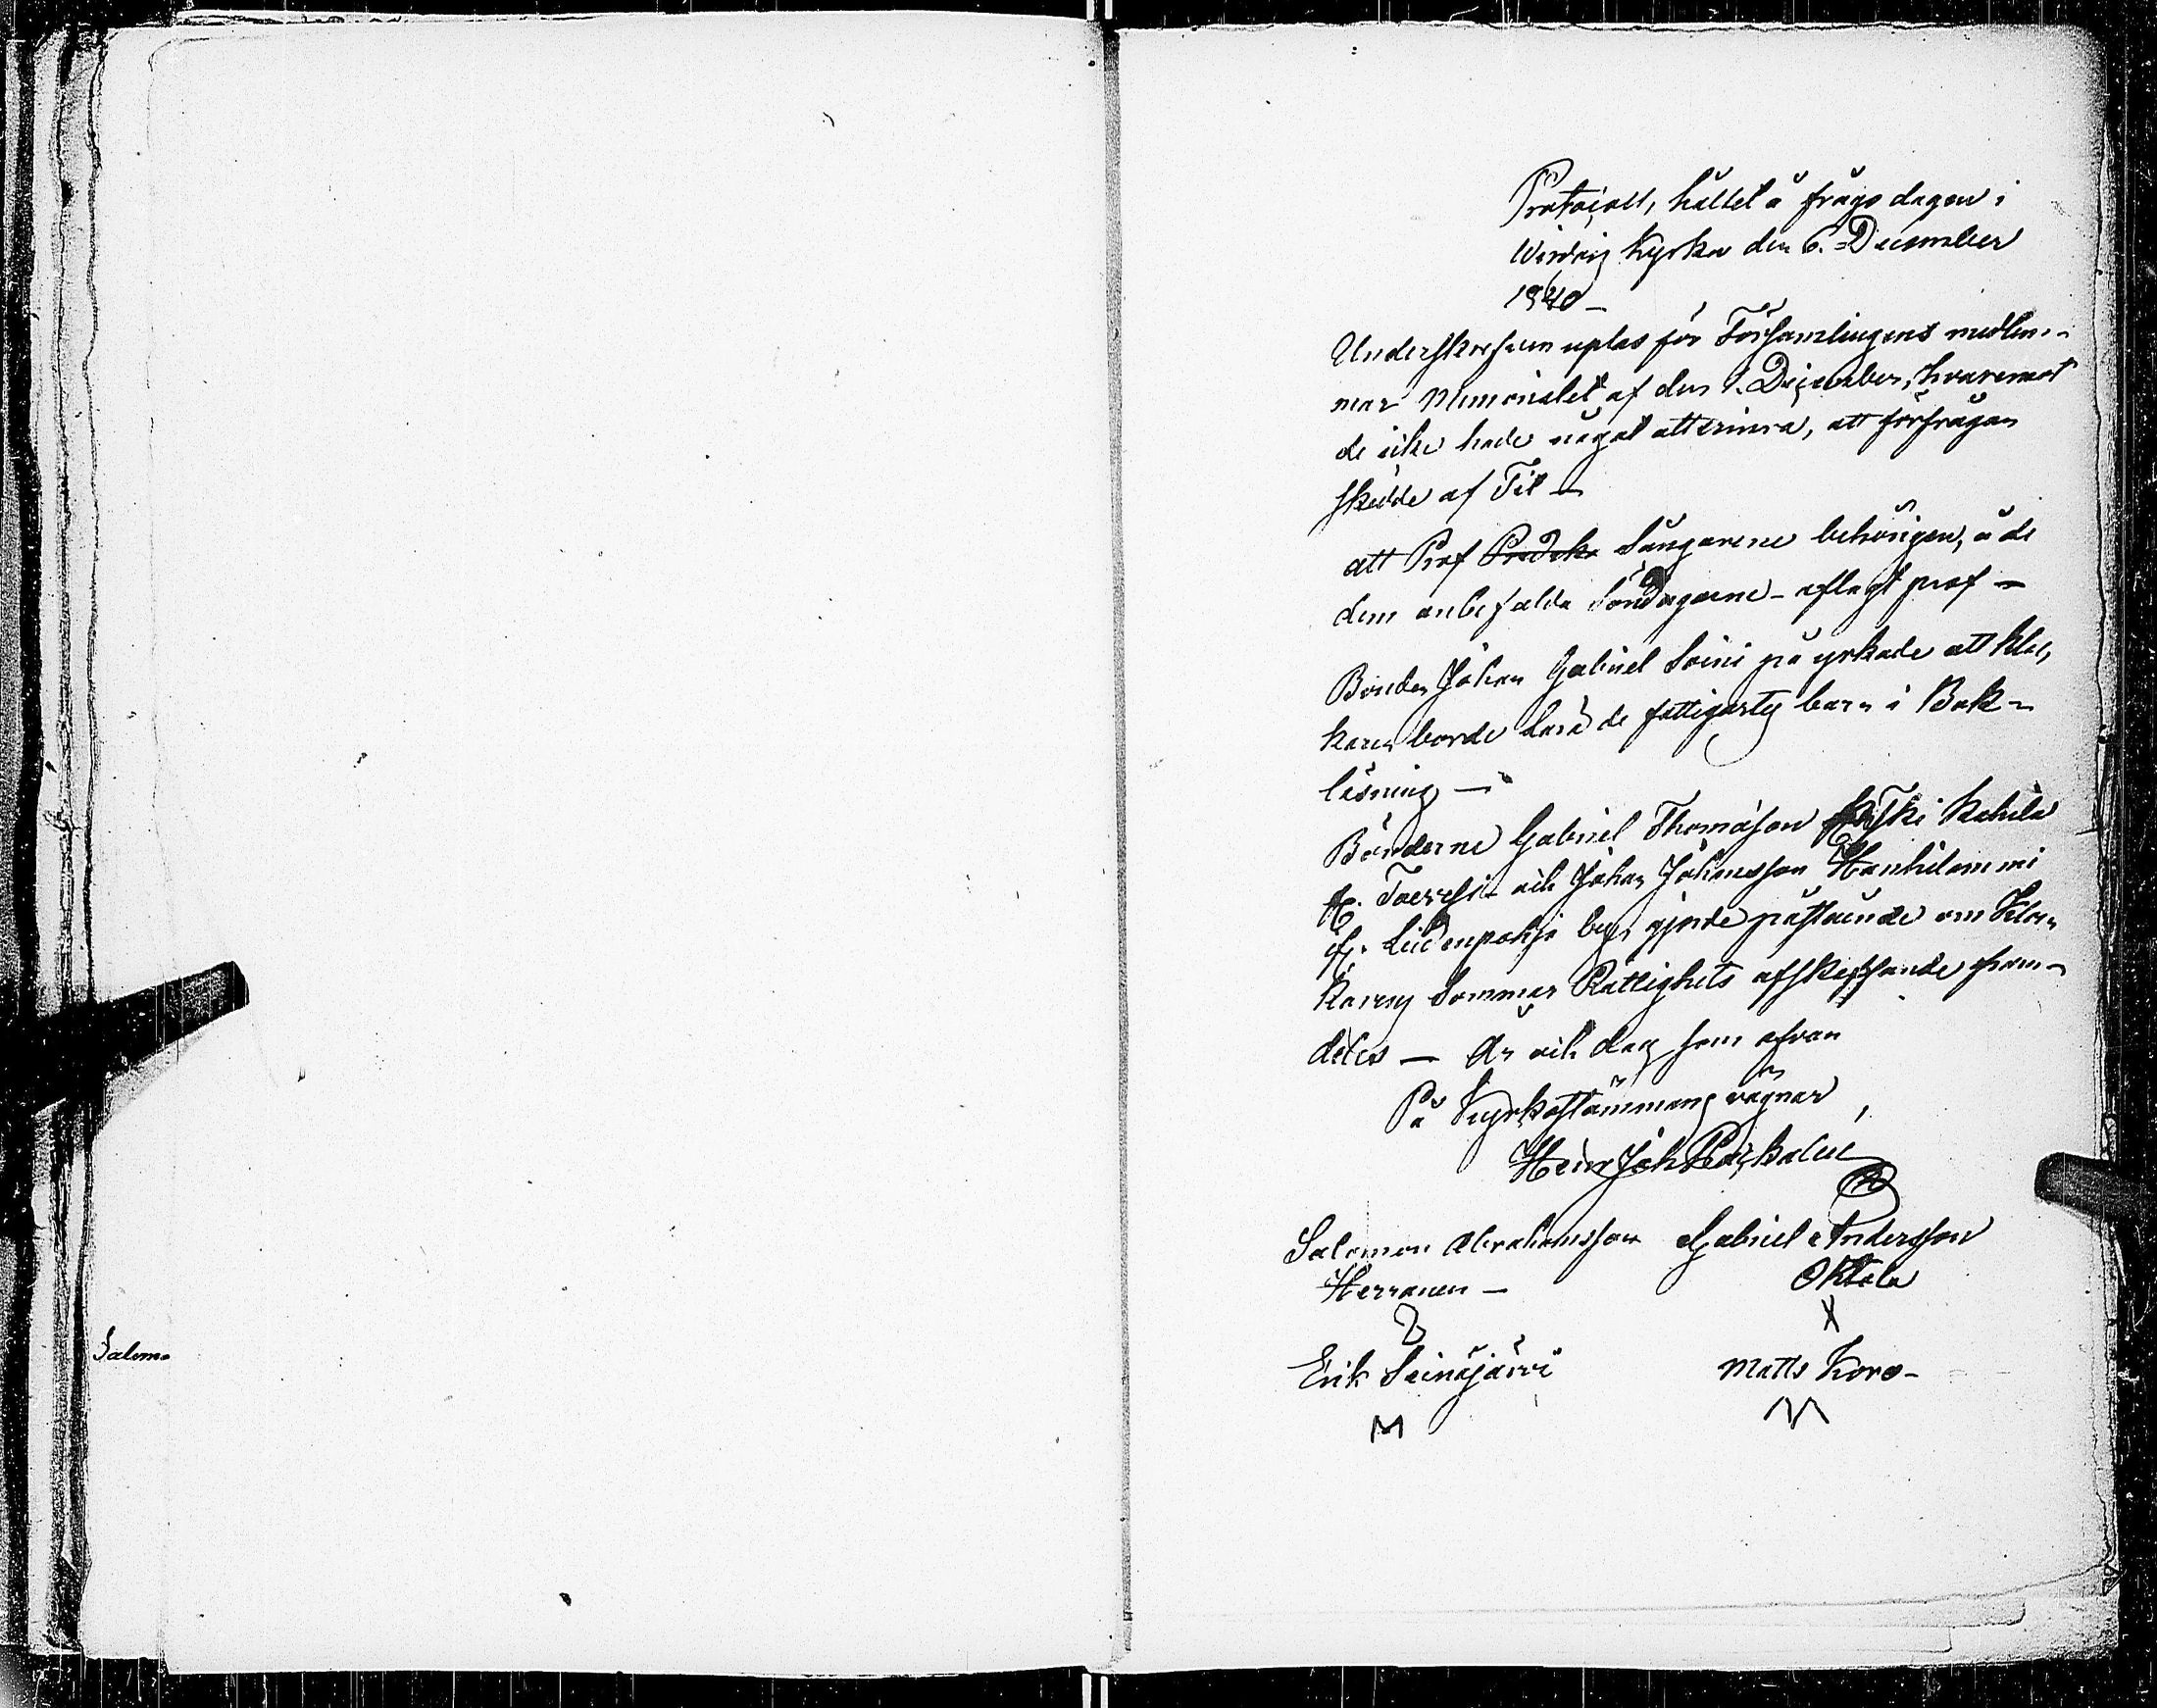 Salom
Protocoll, hållet å frågo dagen i
Wirdois Kyrka den 6. December
1840 —
Underskrefven uplas för Församlingens medlem-
mar Memorialet af den 1. December, hvaremot
de icke hade något att erinra, att förfrågan
skedde af
att Prof Sångarene behörigen, å de
dem anbefalda Söndagarne aflagt prof —
Bonden Johan Gabriel Soini på yrkade att kloc,
karen borde lära de fattigaste barn i Bok-
läsning —
Bönderne Gabriel Thomasson Kahila
och Johan Johansson Hankilammi
gjorde påstående om Kloc,
Karens Sommar Rättighets afskaffande fram-
deles — År och dag som ofvan
På Kyrkostämmans vägnar
Heinr Joh
Salomon Abrahamsson Gabriel Andersson
Herranen — Ohtola
X
Erik Seinäjärvi Matts Koro-
M M